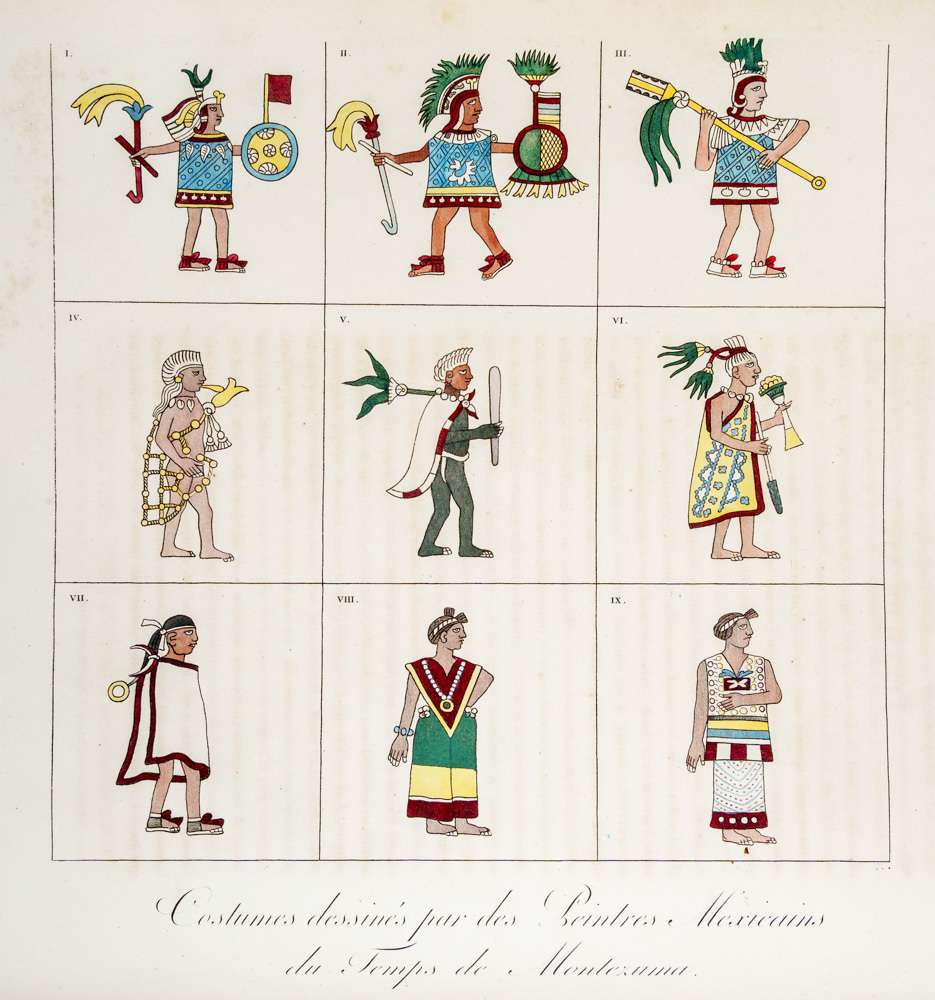 I.
II.
III.
IV.
V.
VI.
VII.
VIII.
IX.
Costumes dessinés par des Peintres Mexicains
du Temps de Montezuma.